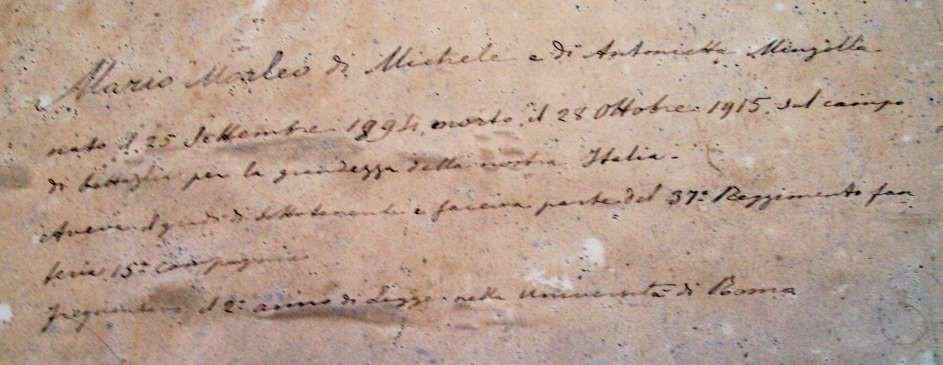 Mario Morleo di Michele e di Antonietta Mingolla
nato il 25 Settembre 1894, morto il 28 Ottobre 1915 sul campo
di battaglia per la grandezza della nostra Italia -
Aveva il grado di Sottotenente e faceva parte del 37° Reggimento fan
teria 15ª Compagnia
frequentava il 2° anno di Legge nella Università di Roma